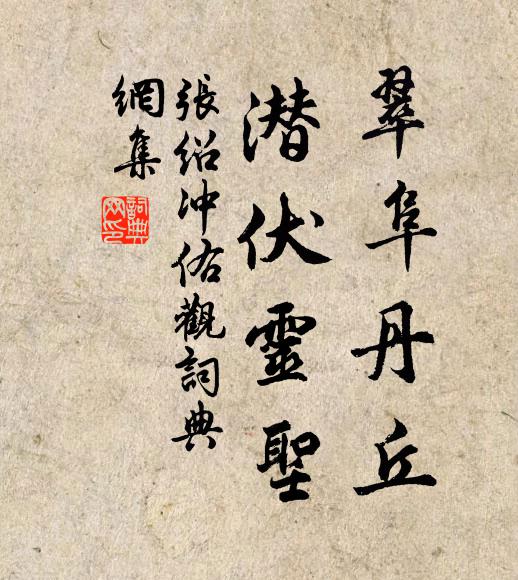 翠阜丹丘
潜伏靈聖
張紹冲佑觀詞典
網集
詞典
网印